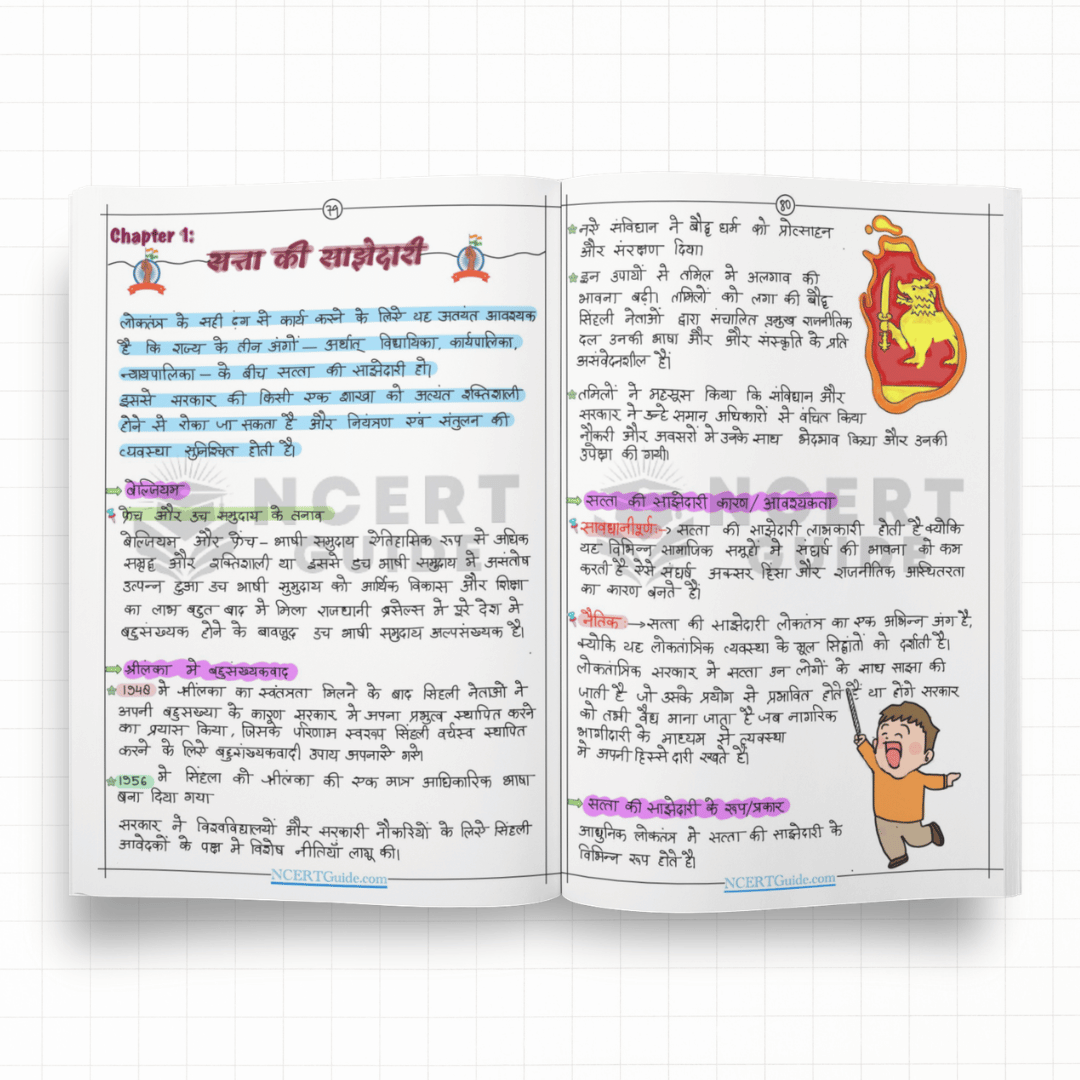 79
Chapter 1:
सत्ता की साझेदारी
लोकतंत्र के सही ढंग से कार्य करने के लिऐ यह अतयंत आवश्यक
है कि राज्य के तीन अंगों — अर्थात् विद्यायिका, कार्यपालिका,
न्यायपालिका — के बीच सत्ता की साझेदारी हो।
इससे सरकार की किसी एक शाखा को अत्यंत शक्तिशाली
होने से रोका जा सकता है और नियंत्रण एवं संतुलन की
व्यवस्था सुनिश्चित होती है।
बेल्जियम
फ्रेंच और डच समुदाय के तनाव
बेल्जियम और फ्रेंच - भाषी समुदाय ऐतिहासिक रूप से अधिक
समृद्ध और शक्तिशाली था इससे डच भाषी समुदाय में असंतोष
उत्पन्न हुआ डच भाषी सुमुदाय को आर्थिक विकास और शिक्षा
का लाभ बहुत बाद में मिला राजधानी ब्रसेल्स में पूरे देश में
बहुसंख्यक होने के बावजूद डच भाषी समुदाय अल्पसंख्यक है।
श्रीलंका में बहुसंख्यकवाद
1948 में श्रीलंका का स्वंतत्रता मिलने के बाद सिंहली नेताओं ने
अपनी बहुसख्या के कारण सरकार में अपना प्रभुत्व स्थापित करने
का प्रयास किया, जिसके परिणाम स्वरूप सिंहली वर्चस्व स्थापित
करने के लिऐ बहुसंख्यकवादी उपाय अपनाऐ गऐ।
1956 में सिंहला को श्रीलंका की एक मात्र आधिकारिक भाषा
बना दिया गया
सरकार ने विश्वविद्यालयों और सरकारी नौकरियों के लिऐ सिंहली
आवेदकों के पक्ष में विशेष नीतियाँ लागू की।
NCERTGuide.com
80
नऐ संविधान ने बौद्ध धर्म को प्रोत्साहन
और संरक्षण दिया।
इन उपायों से तमिल में अलगाव की
भावना बढ़ी। तमिलों को लगा की बौद्ध
सिंहली नेताओं द्वारा संचालित प्रमुख राजनीतिक
दल उनकी भाषा और और संस्कृति के प्रति
असंवेदनशील हैं।
तमिलों ने महसूस किया कि संविधान और
सरकार ने उन्हें समान अधिकारों से वंचित किया
नौकरी और अवसरों में उनके साथ भेदभाव किया और उनकी
उपेक्षा की गयी।
सत्ता की साझेदारी कारण/ आवश्यकता
सावधानीपूर्ण :→ सत्ता की साझेदारी लाभकारी होती है क्योंकि
यह विभिन्न सामाजिक समूहों में संघर्ष की भावना को कम
करती है ऐसे संघर्ष अक्सर हिंसा और राजनीतिक अस्थितरता
का कारण बनते हैं।
नैतिक :→ सत्ता की साझेदारी लोकतंत्र का एक अभिन्न अंग है,
क्योंकि यह लोकतांत्रिक व्यवस्था के मूल सिद्वांतों को दर्शाती है।
लोकतांत्रिक सरकार में सत्ता उन लोगों के साथ साझा की
जाती है जो उसके प्रयोग से प्रभावित होते हैं या होंगे सरकार
को तभी वैध माना जाता है जब नागरिक
भागीदारी के माध्यम से व्यवस्था
में अपनी हिस्से दारी रखते हैं।
सत्ता की साझेदारी के रूप/प्रकार
आधुनिक लोकतंत्र में सत्ता की साझेदारी के
विभिन्न रूप होते हैं।
NCERTGuide.com
NCERT
GUIDE
NCERT
GUIDE